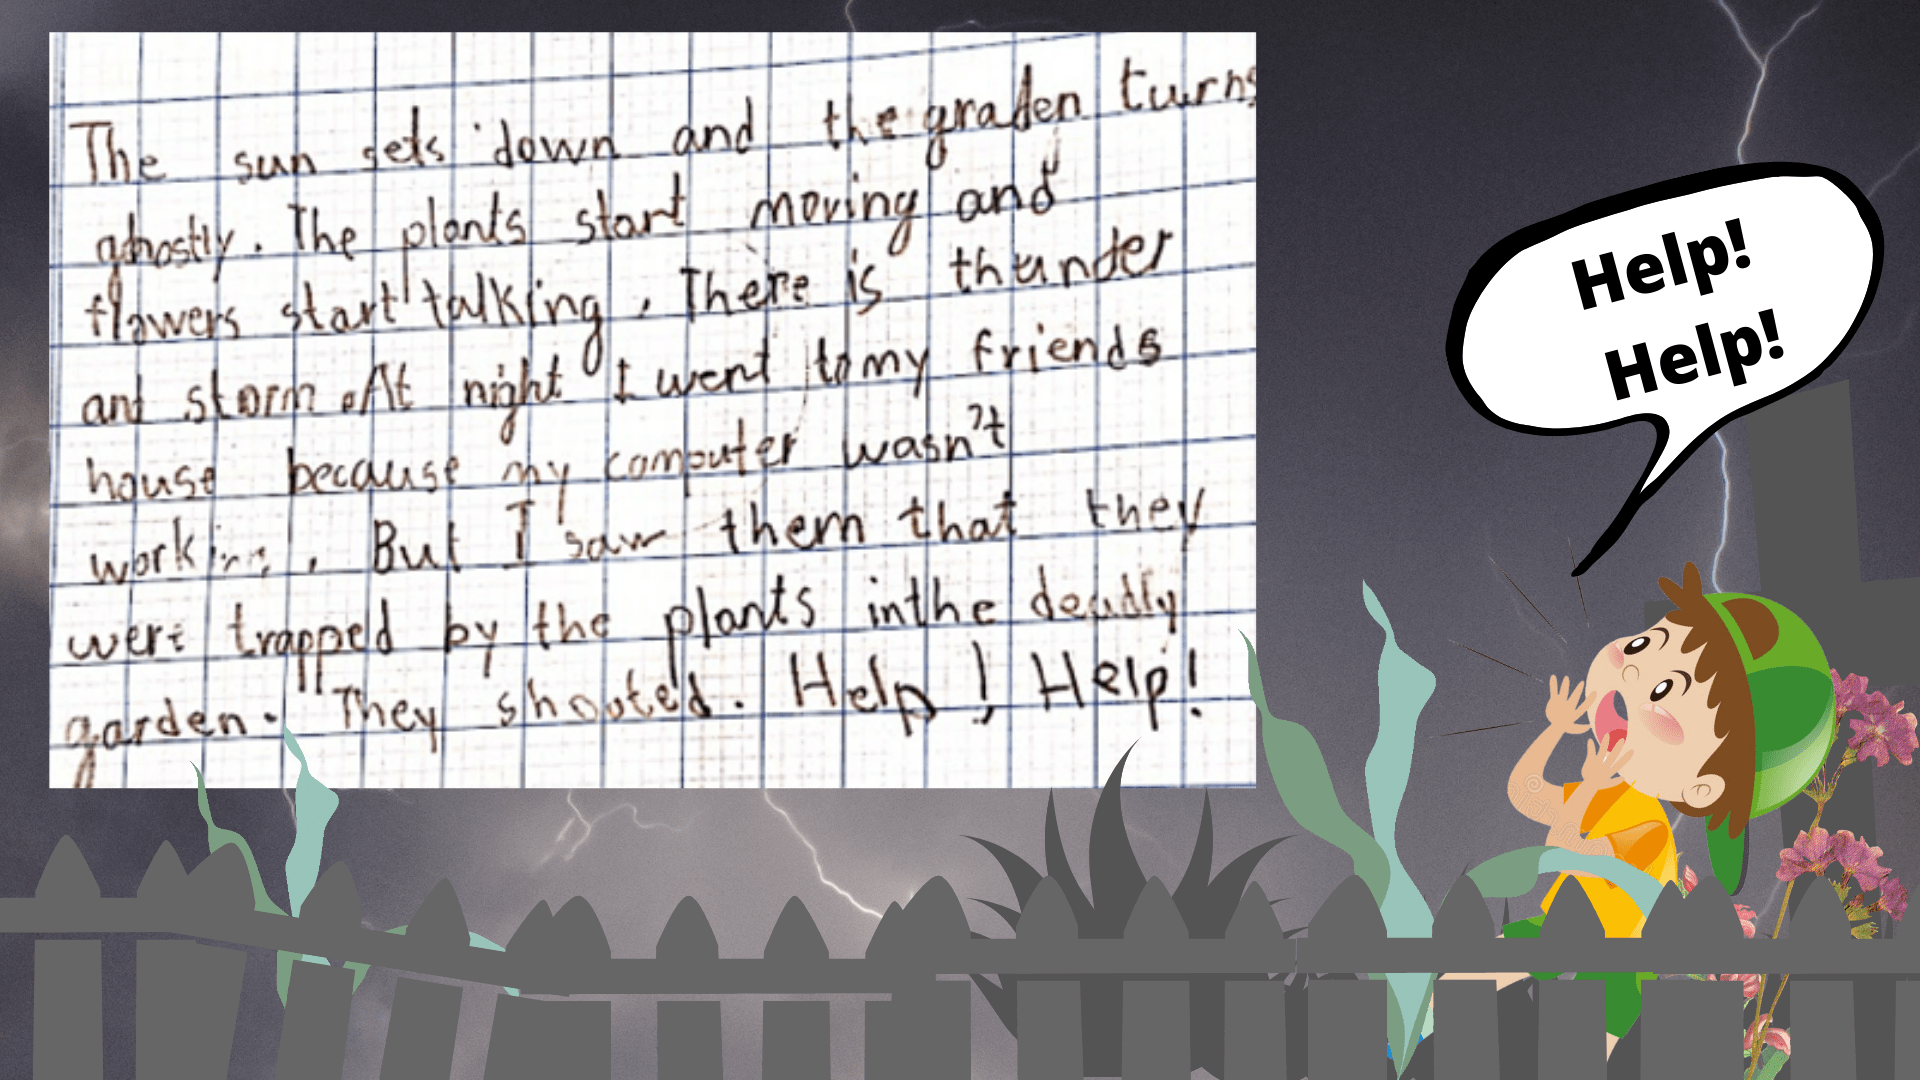 The sun sets down and the graden turns
ghostly. The plants start moving and
flowers start talking. There is thunder
and storm. At night I went to my friends
house because my computer wasn't
working. But I saw them that they
were trapped by the plants in the deadly
garden. They shooted. Help! Help!
Help!
Help!